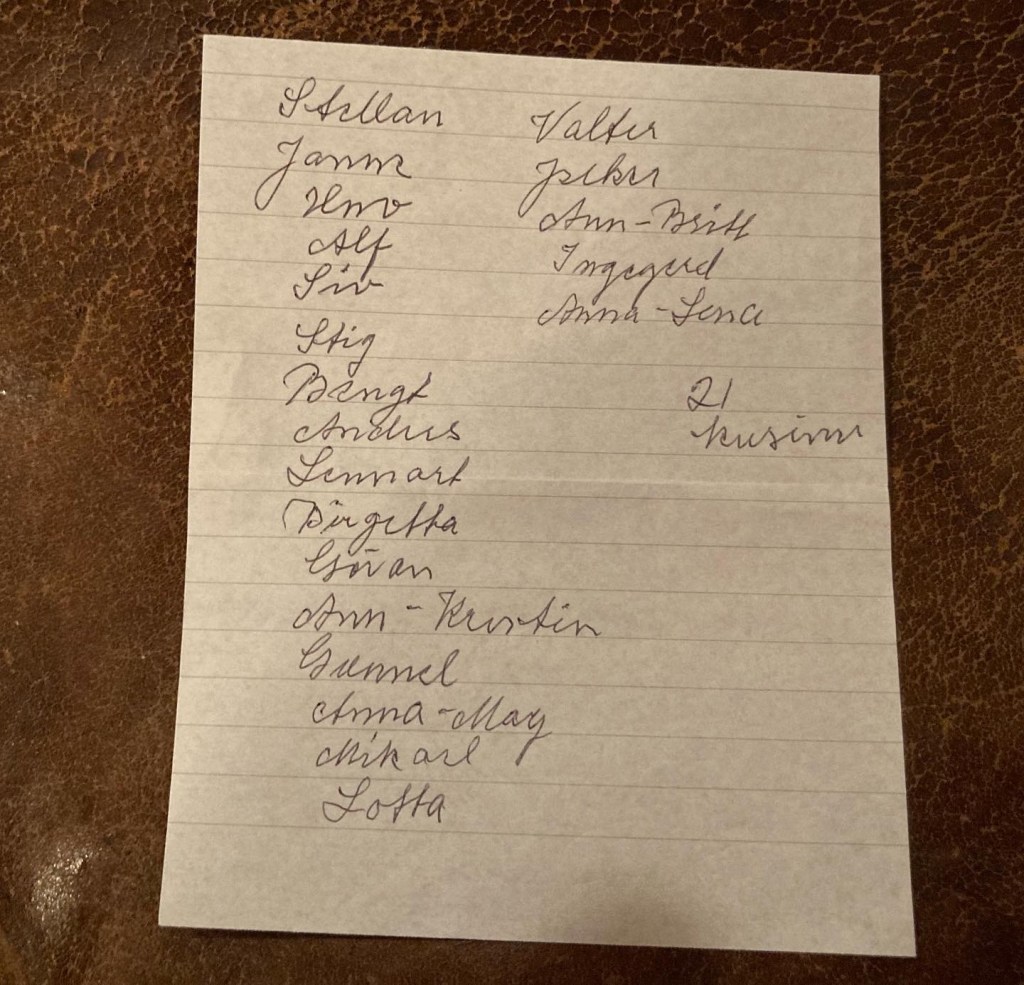 Stellan
Janne
Uno
Alf
Siv
Stig
Bengt
Anders
Lennart
Birgetta
Göran
Ann-Kristin
Gunnel
Anna-May
Mikael
Lotta
Valter
Ann-Britt
Ingegerd
Anna-Lena
21
kusiner